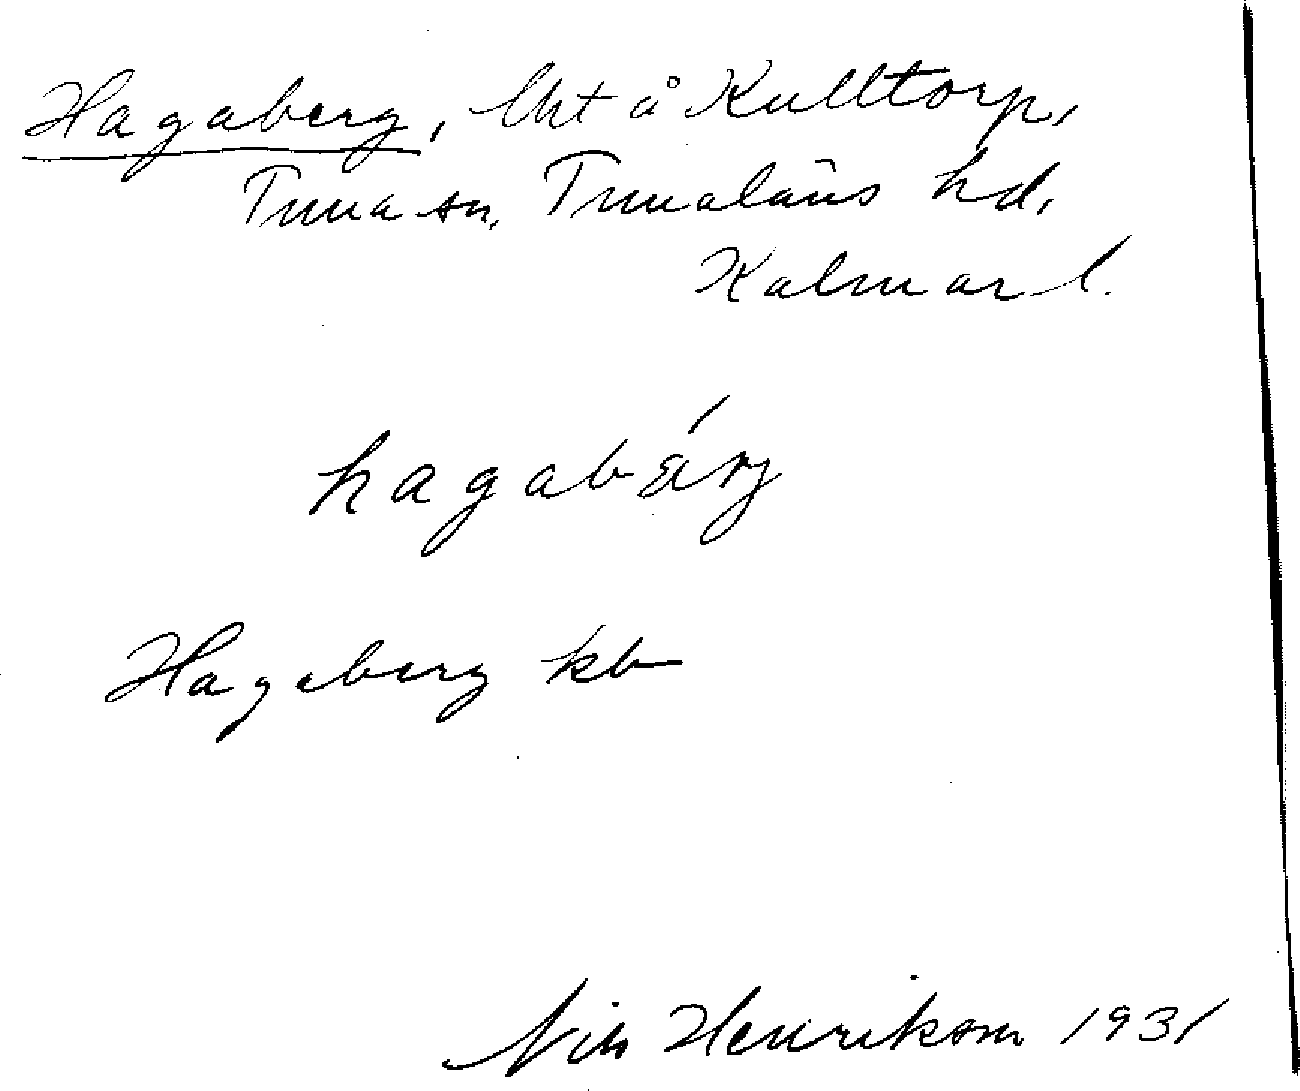 Hagaberg, lht å Kulltorp,
Tuna sn, Tunaläns hd,
Kalmar l.
hagabärj
Hagaberg kb
Nils Henrikson 1931